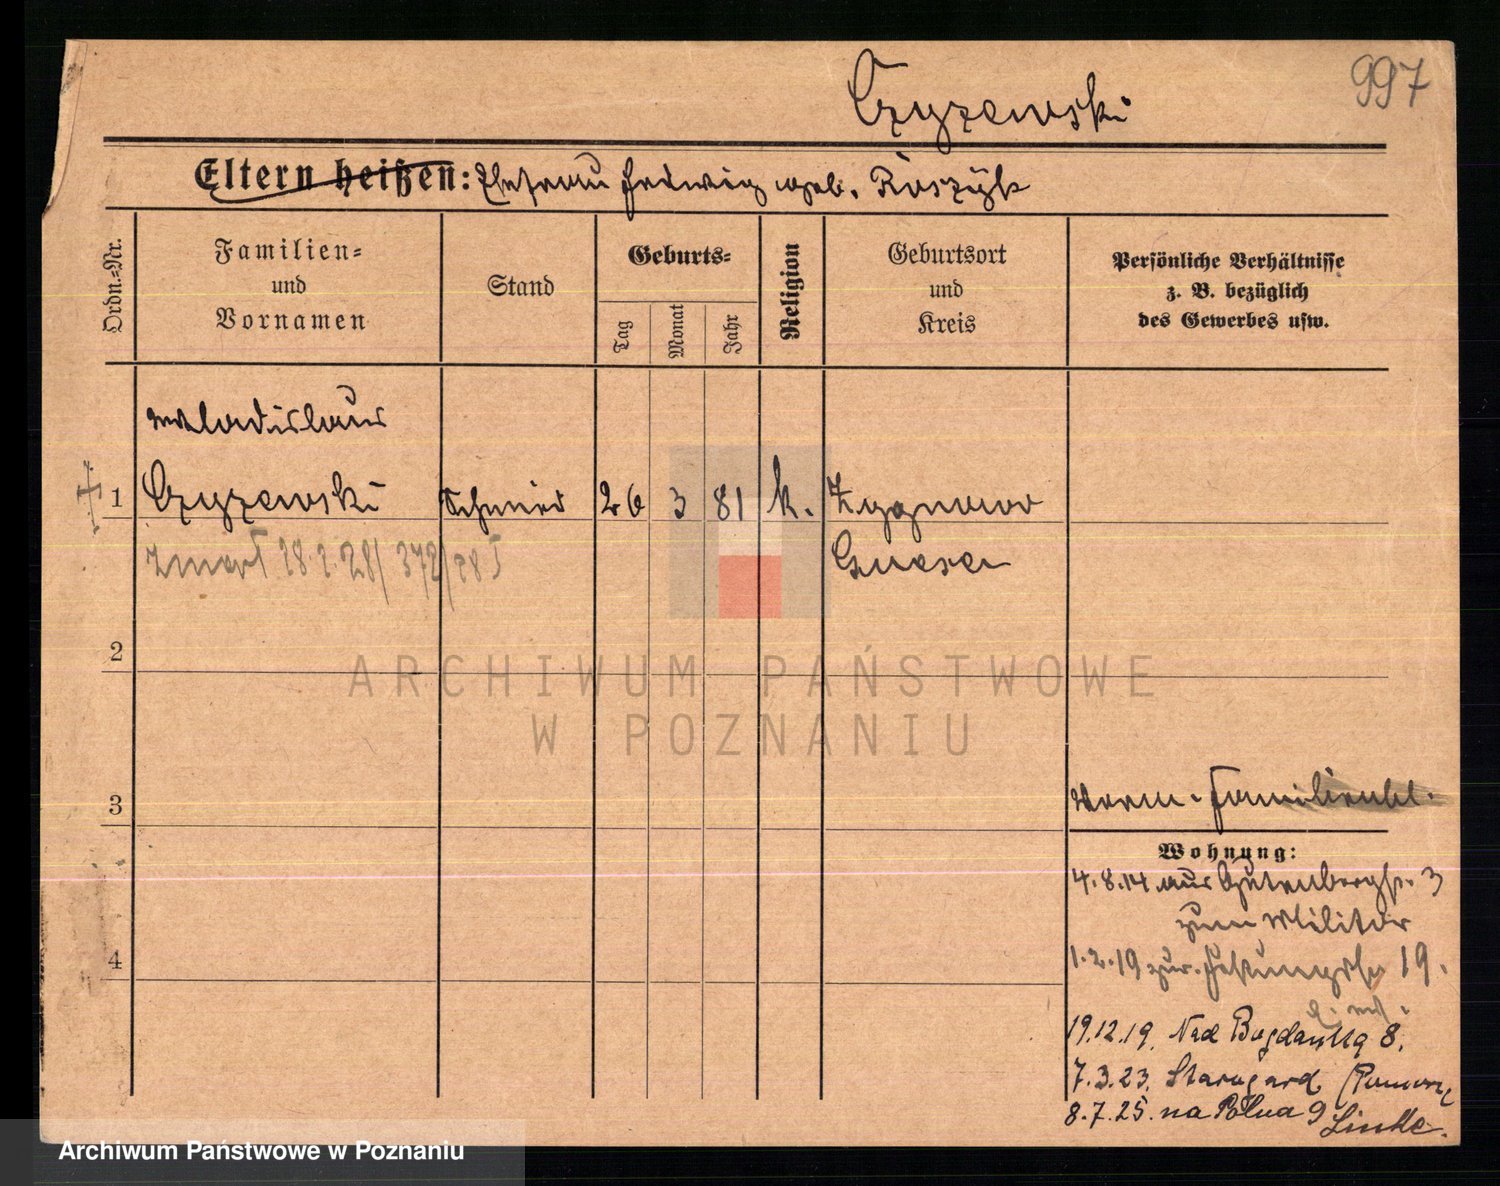 997
Czyzewski
Eltern heißen: Ehefrau Hedwig geb. Roszyk
Ordn.-Nr.
Familien- und Vornamen
Stand
Geburts-
Tag
Monat
Jahr
Religion
Geburtsort und Kreis
Persönliche Verhältnisse
z. B. bezüglich
des Gewerbes usw.
Wladislaus
1 Czyzewski Schmied 26 3 81 k. Zygmowo
zmarł 18.2.28/ 372/28 I
Gnesen
2
ARCHIWUM PAŃSTWOWE
W POZNANIU
3
Verm. Familienbl.
Wohnung:
4.8.14 aus Gutenbergstr. 3
zum Militär
4
1.2.19 zur. Festungsstr 19.
19.12.19. Nad Bogdanką 8.
7.3.23. Starogard (Pomorz.
8.7.25. na Polna 9
Linke.
Archiwum Państwowe w Poznaniu